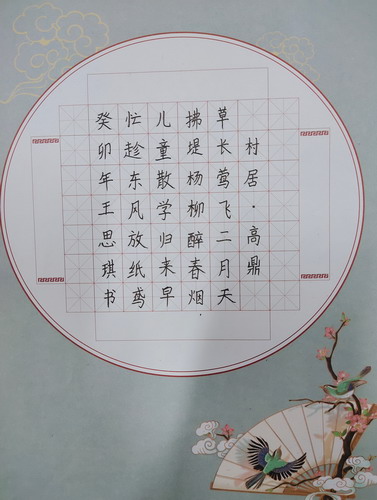 村居·高鼎
草长莺飞二月天
拂堤杨柳醉春烟
儿童散学归来早
忙趁东风放纸鸢
癸卯年王思琪书